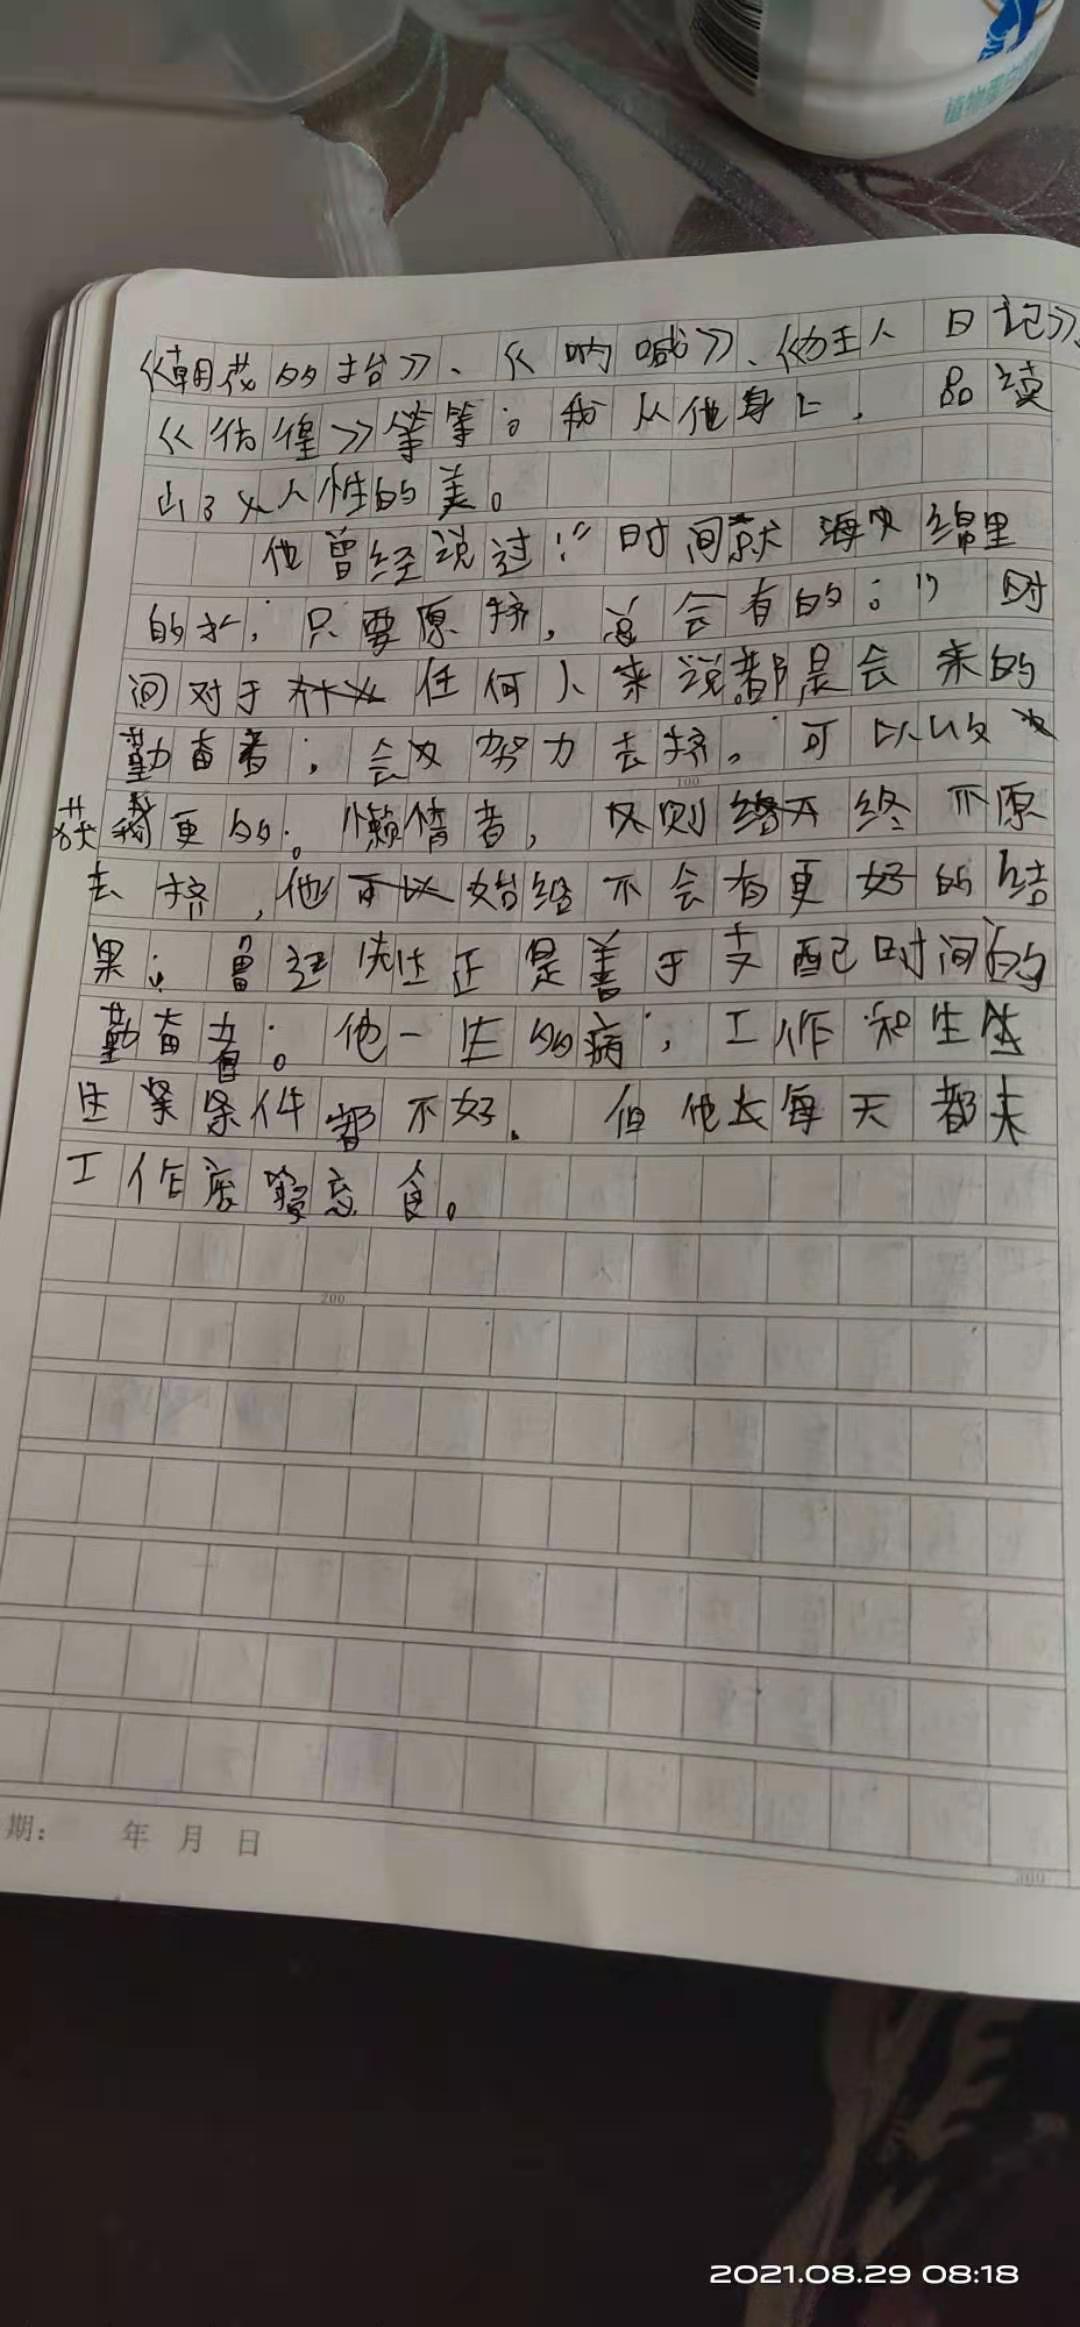 植物蛋白
《朝花的拾》、《呐喊》、人日记》
《彷徨》等等；我从他身上，品读
出了人性的美。
他曾经说过：“时间就海绵里
的水，只要原挤，总会有的；”时
间对于任何人来说都是会来的
勤奋者；会努力去挤。可以收
获更的。懒惰者，反则始终不原
去挤，他始终不会有更好的结
果；鲁迅先生正是善于支配时间的
勤奋者。他一生的病；工作和生
条件都不好．但他每天都未
工作废寝忘食。
100
200
300
期： 年 月 日
2021.08.29 08:18